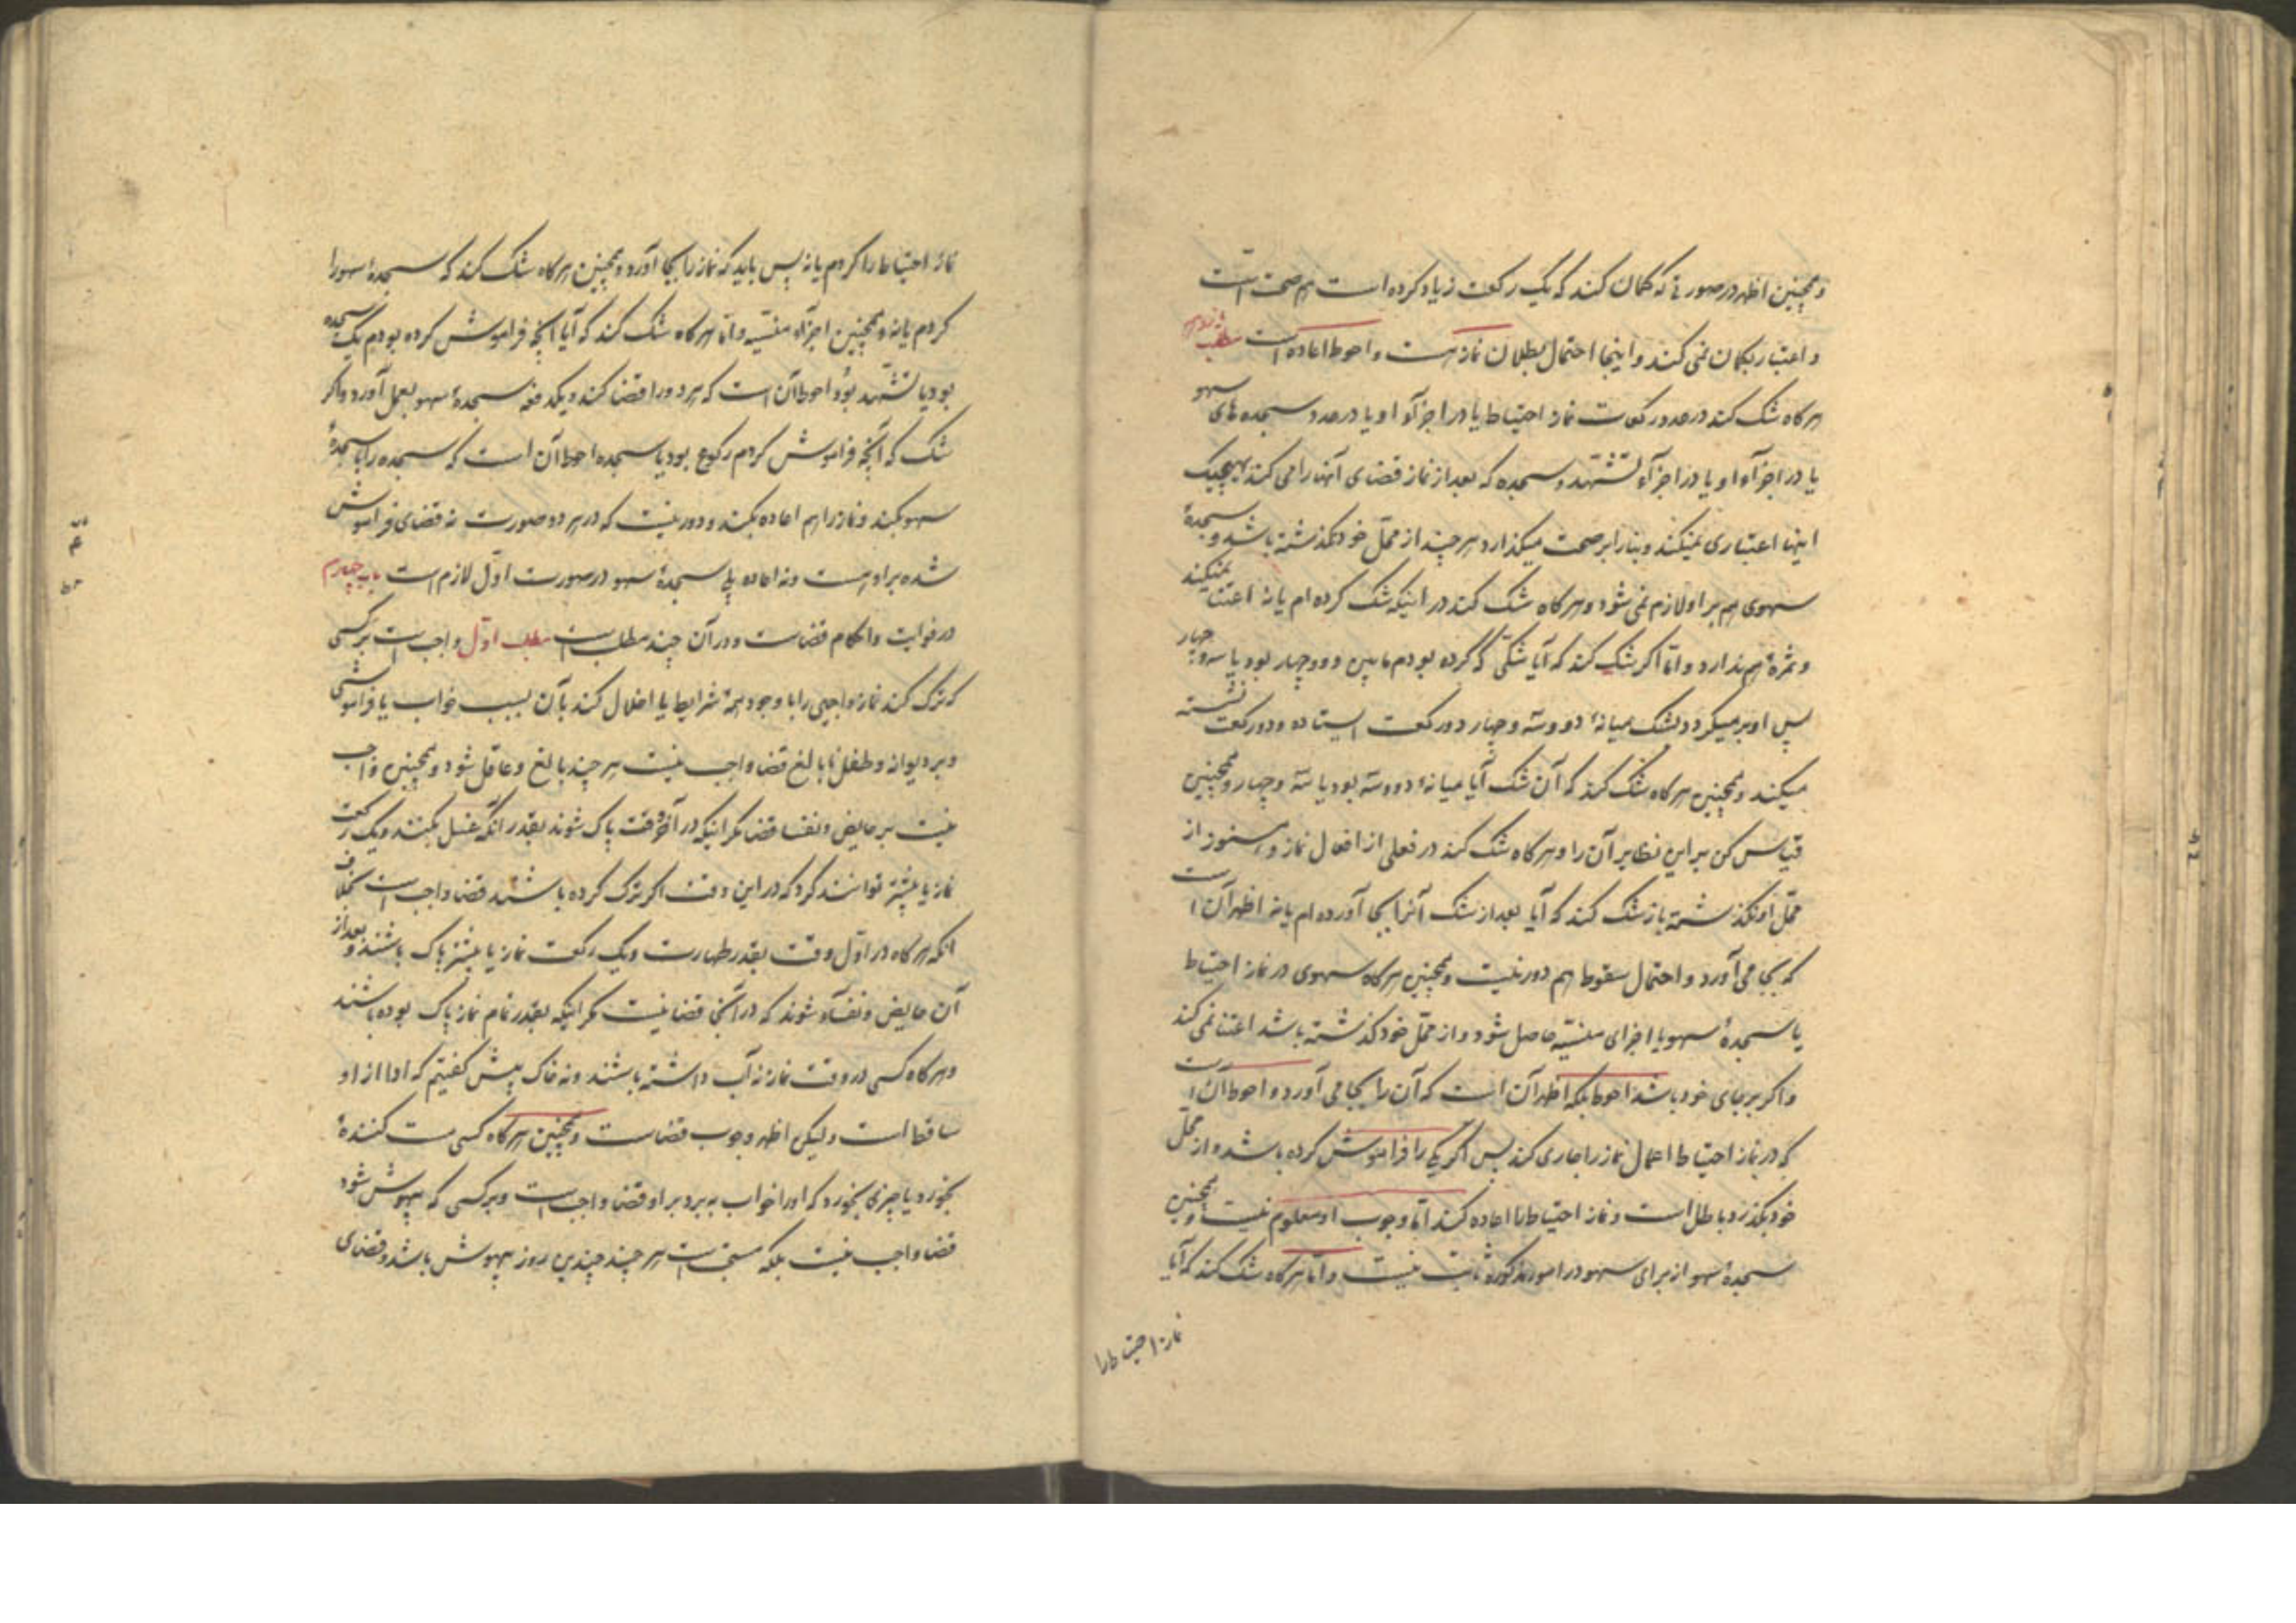 و همچنین اظهر در صورتی که گمان کند که یک رکعت زیاد کرده است هم صحت است
و اعتبار بگمان نمی کند و اینجا احتمال بطلان نماز هست و احوط اعاده است مطلب
هرگاه شک کند در عدد رکعت نماز احتیاط یا در اجزآء او یا در عدد سجده های سهو
یا در اجزآء او یا در اجزآء تشهد و سجده که بعد از نماز قضای آنها را می کند بهیچیک
اینها اعتباری نمیکند و بنا را بر صحت میگذارد هر چند از محل خود نگذشته باشد و سجدهٔ
سهوی هم بر او لازم نمی شود و هرگاه شک کند در اینکه شک کرده ام یا نه اعتنا نمیکند
و ثمرهٔ هم ندارد و اما اگر شک کند که آیا شکی که کرده بودم مابین دو و چهار بود یا سه و چهار
پس او بر میگردد بشک میانهٔ دو و سه و چهار دو رکعت ایستاده و دو رکعت نشسته
میکند و همچنین هرگاه شک کند که آن شک آیا میانهٔ دو و سه بود یا سه و چهار و همچنین
قیاس کن بر این نظایر آن را و هرگاه شک کند در فعلی از افعال نماز و هنوز از
محل او نگذشته باز شک کند که آیا بعد از شک آنرا بجا آورده ام یا نه اظهر آن است
که بجا می آورد و احتمال سقوط هم دور نیست و همچنین هرگاه سهوی در نماز احتیاط
یا سجدهٔ سهو یا اجزای منسیّه حاصل شود و از محل خود گذشته باشد اعتنا نمی کند
و اگر بر جای خود باشد احوط بلکه اظهر آن است که آن را بجا می آورد و احوط آن است
که در نماز احتیاط اعمال نماز را جاری کند پس اگر یکی را فراموش کرده باشد و از محل
خود بگذرد باطل است و نماز احتیاط را اعاده کند اما وجوب او معلوم نیست و همچنین
سجدهٔ سهو از برای سهو در امور مذکوره ثابت نیست و اما هرگاه شک کند که آیا
نماز احتیاط را
نماز احتیاط را کردم یا نه پس باید که نماز را بجا آورد و همچنین هرگاه شک کند که سجدهٔ سهو را
کردم یا نه و همچنین اجزآء منسیّه و اما هرگاه شک کند که آیا آنچه فراموش کرده بودم یک سجده
بود یا تشهد بود احوط آن است که هر دو را قضا کند و یکدفعه سجدهٔ سهو بعمل آورد و اگر
شک که آنچه فراموش کردم رکوع بود یا سجده احوط آن است که سجده را با سجدهٔ
سهو بکند و نماز را هم اعاده بکند و دور نیست که در هر دو صورت نه قضای فراموش
شده بر او هست و نه اعاده بلی سجدهٔ سهو در صورت اول لازم است باب چهارم
در فوایت و احکام قضاست و در آن چند مطلب است مطلب اول واجب است بر کسی
که ترک کند نماز واجبی را با وجود همهٔ شرایط یا اخلال کند بآن بسبب خواب یا فراموشی
و بر دیوانه و طفل نابالغ قضا واجب نیست هر چند بالغ و عاقل شود و همچنین واجب
نیست بر حایض و نفسا قضا مگر اینکه در آخر وقت پاک شوند بقدر آنکه غسل بکنند و یک رکعت
نماز یا بیشتر توانند کرد که در این وقت اگر ترک کرده باشند قضا واجب است بخلاف
انکه هرگاه در اول وقت بقدر طهارت و یک رکعت نماز یا بیشتر پاک باشند و بعد از
آن حایض و نفسآء شوند که در آنجا قضا نیست مگر اینکه بقدر تمام نماز پاک بوده باشند
و هرگاه کسی در وقت نماز نه آب داشته باشند و نه خاک پیش گفتیم که ادا از او
ساقط است ولیکن اظهر وجوب قضاست و همچنین هرگاه کسی مست کنندهٔ
بخورد یا چیزی بخورد که او را خواب ببرد بر او قضا واجب است و بر کسی که بیهوش شود
قضا واجب نیست بلکه مستحب است هر چند چندین روز بیهوش باشد و قضای